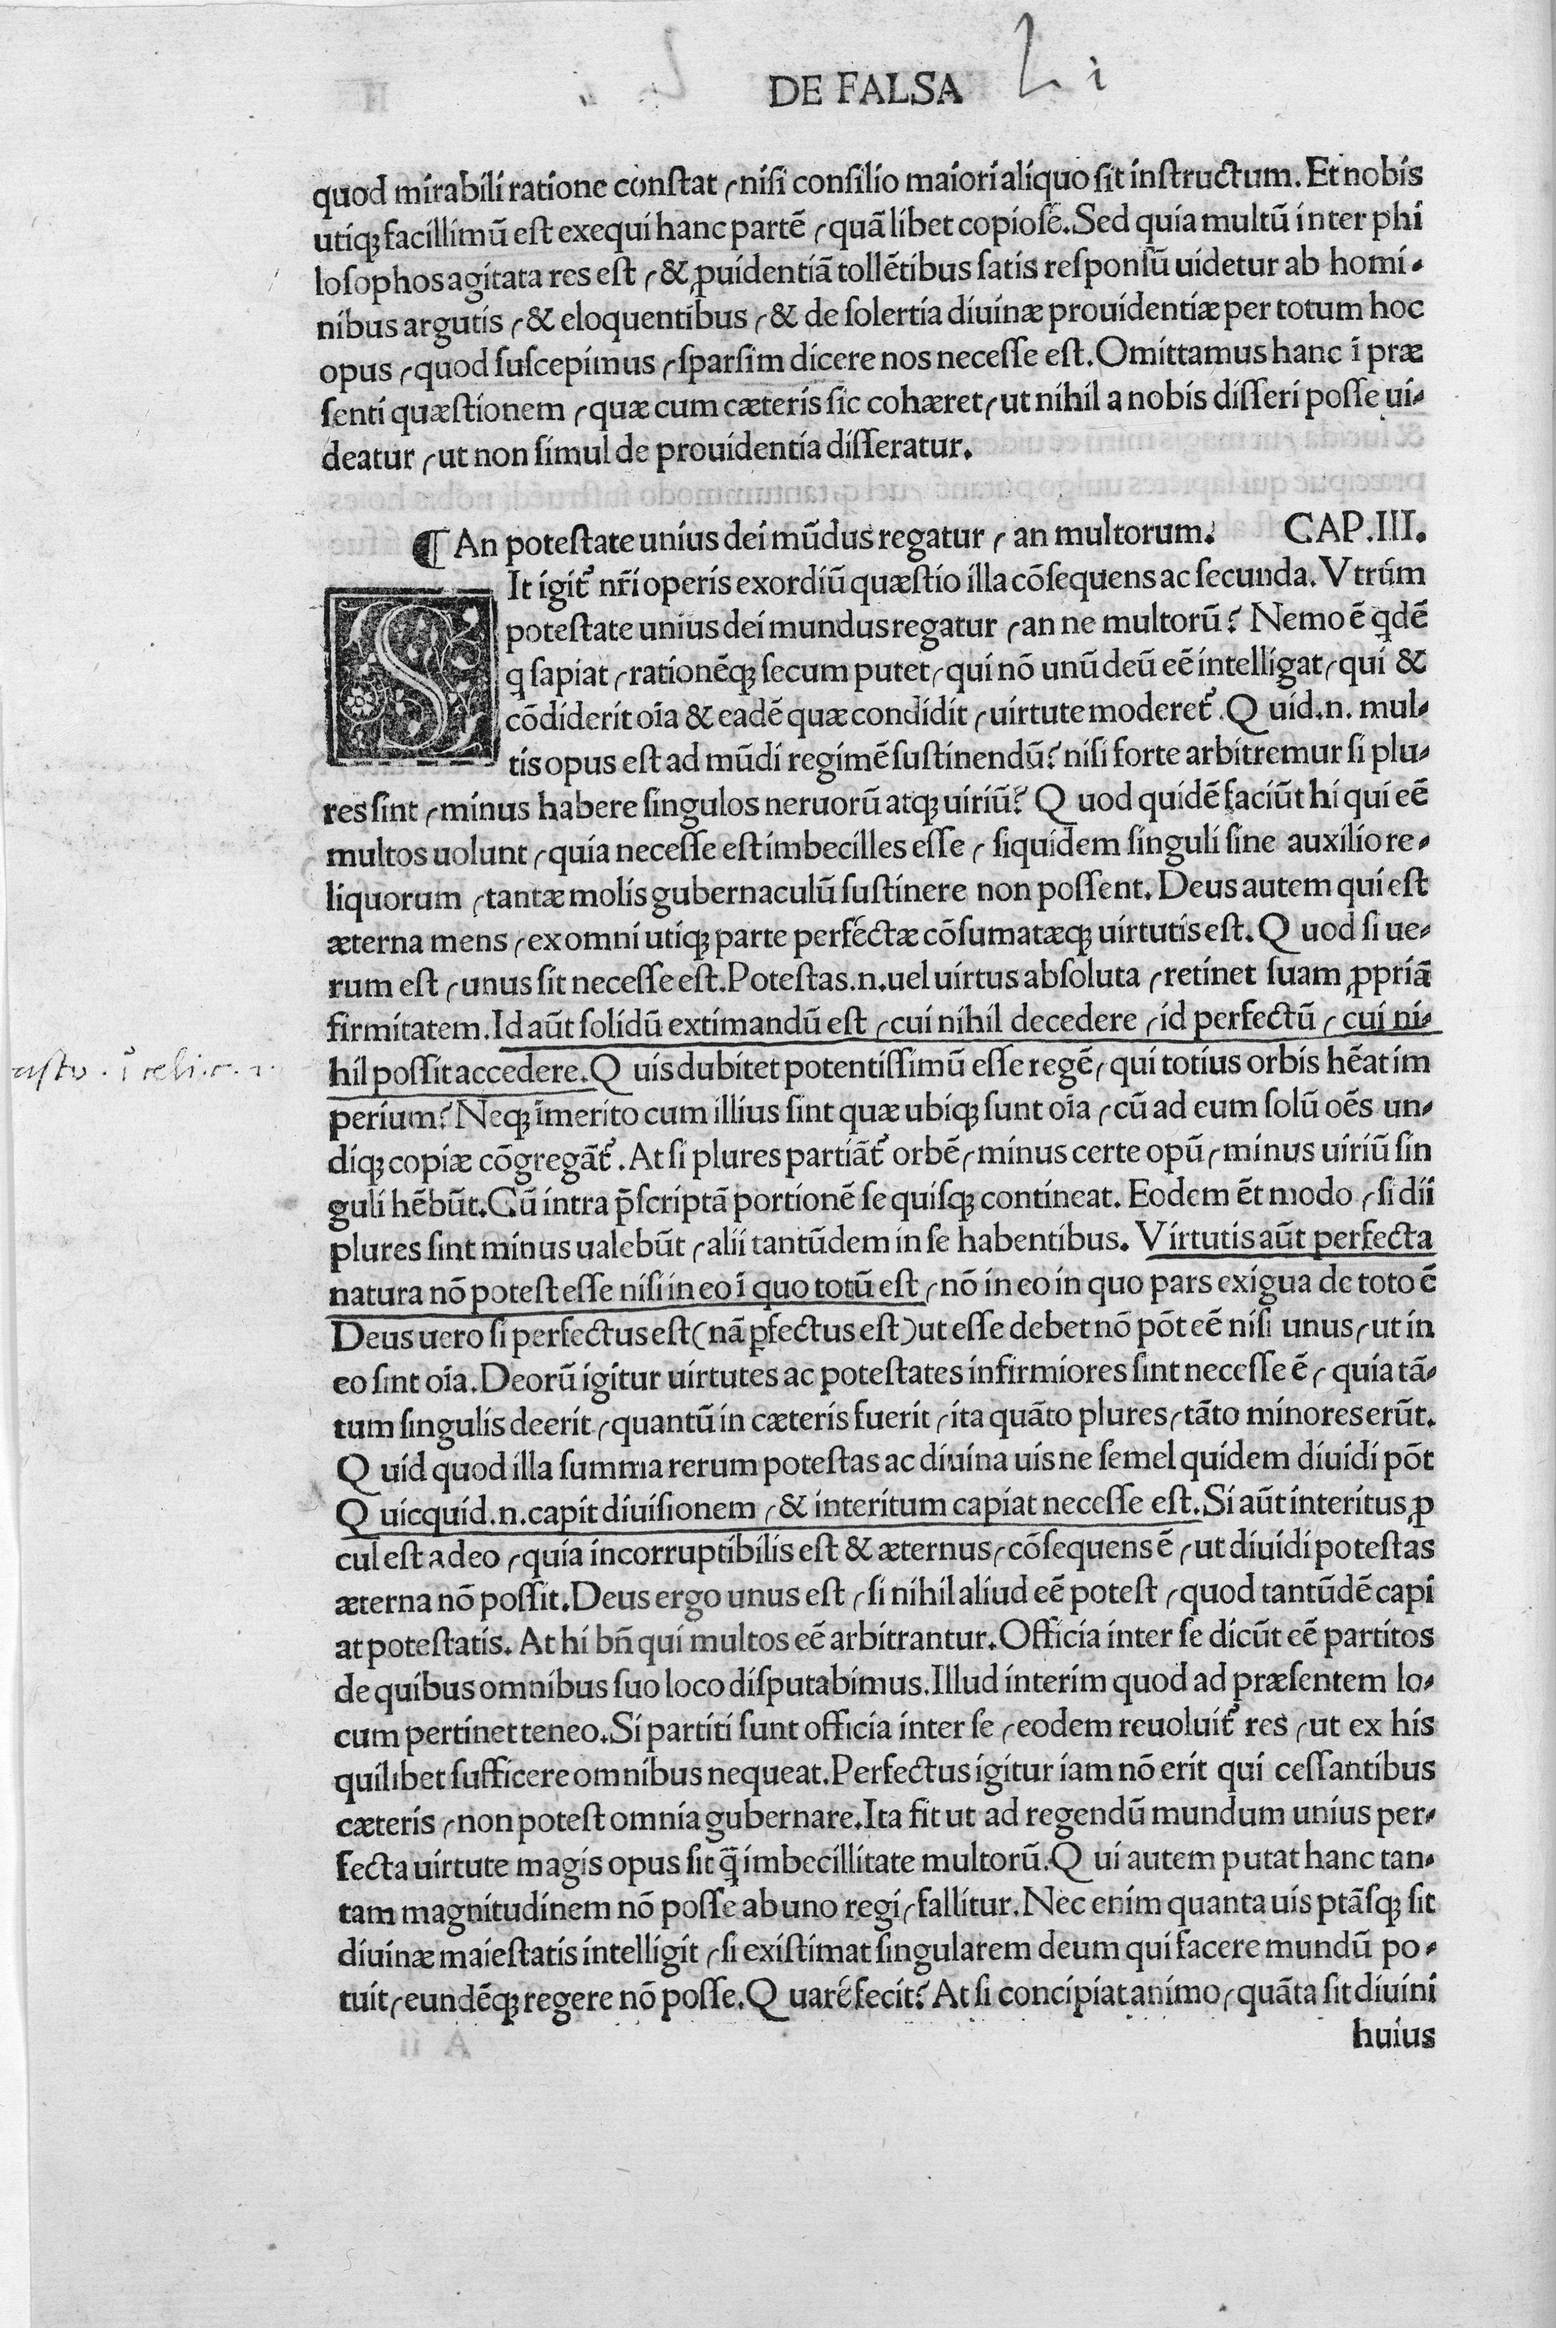 DE FALSA L i
quod mirabili ratione constat, nisi consilio maiori aliquo sit instructum. Et nobis
utiqꝫ facillimũ est exequi hanc partẽ, quã libet copiose. Sed quia multũ inter phi
losophos agitata res est, & ꝓuidentiã tollẽtibus satis responsũ uidetur ab homi-
nibus argutis, & eloquentibus, & de solertia diuinæ prouidentiæ per totum hoc
opus, quod suscepimus, sparsim dicere nos necesse est. Omittamus hanc ĩ præ
senti quæstionem, quæ cum cæteris sic cohæret, ut nihil a nobis disseri posse ui-
deatur, ut non simul de prouidentia disseratur.
¶ An potestate unius dei mũdus regatur, an multorum. CAP.III.
SIt igit᷑ nr̃i operis exordiũ quæstio illa cõsequens ac secunda. Vtrúm
potestate unius dei mundus regatur, an ne multorũ? Nemo ẽ qdẽ
q sapiat, rationẽqꝫ secum putet, qui nõ unũ deũ eẽ intelligat, qui &
cõdiderit oĩa & eadẽ quæ condidit, uirtute moderet᷑. Quid.n. mul-
tis opus est ad mũdi regimẽ sustinendũ? nisi forte arbitremur si plu-
res sint, minus habere singulos neruorũ atqꝫ uiriũ? Quod quidẽ faciũt hi qui eẽ
multos uolunt, quia necesse est imbecilles esse, siquidem singuli sine auxilio re-
liquorum, tantæ molis gubernaculũ sustinere non possent. Deus autem qui est
æterna mens, ex omni utiqꝫ parte perféctæ cõsumatæqꝫ uirtutis est. Quod si ue-
rum est, unus sit necesse est. Potestas.n.uel uirtus absoluta, retinet suam ꝓpriã
firmitatem. Id aũt solidũ extimandũ est, cui nihil decedere, id perfectũ, cui ni-
hil possit accedere. Quis dubitet potentissimũ esse regẽ, qui totius orbis hẽat im
perium? Neqꝫ ĩmerito cum illius sint quæ ubiqꝫ sunt oĩa, cũ ad eum solũ oẽs un-
diqꝫ copiæ cõgregãt᷑. At si plures partiãt᷑ orbẽ, minus certe opũ, minus uiriũ sin
guli hẽbũt. Cũ intra p̃scriptã portionẽ se quisqꝫ contineat. Eodem ẽt modo, si dii
plures sint minus ualebũt, alii tantũdem in se habentibus. Virtutis aũt perfecta
natura nõ potest esse nisi in eo ĩ quo totũ est, nõ in eo in quo pars exigua de toto ẽ
Deus uero si perfectus est (nã ꝑfectus est) ut esse debet nõ põt eẽ nisi unus, ut in
eo sint oĩa. Deorũ igitur uirtutes ac potestates infirmiores sint necesse ẽ, quia tã-
tum singulis deerit, quantũ in cæteris fuerit, ita quãto plures, tãto minores erũt.
Quid quod illa summa rerum potestas ac diuina uis ne semel quidem diuidi põt
Quicquid.n.capit diuisionem, & interitum capiat necesse est. Si aũt interitus ꝓ
cul est a deo, quia incorruptibilis est & æternus, cõsequens ẽ, ut diuidi potestas
æterna nõ possit. Deus ergo unus est, si nihil aliud eẽ potest, quod tantũdẽ capi
at potestatis. At hi bñ qui multos eẽ arbitrantur. Officia inter se dicũt eẽ partitos
de quibus omnibus suo loco disputabimus. Illud interim quod ad præsentem lo-
cum pertinet teneo. Si partiti sunt officia inter se, eodem reuoluit᷑ res, ut ex his
quilibet sufficere omnibus nequeat. Perfectus igitur iam nõ erit qui cessantibus
cæteris, non potest omnia gubernare. Ita fit ut ad regendũ mundum unius per-
fecta uirtute magis opus sit q̃ imbecillitate multorũ. Qui autem putat hanc tan-
tam magnitudinem nõ posse ab uno regi, fallitur. Nec enim quanta uis ptãsqꝫ sit
diuinæ maiestatis intelligit, si existimat singularem deum qui facere mundũ po-
tuit, eundẽqꝫ regere nõ posse. Quaré fecit? At si concipiat animo, quãta sit diuini
huius